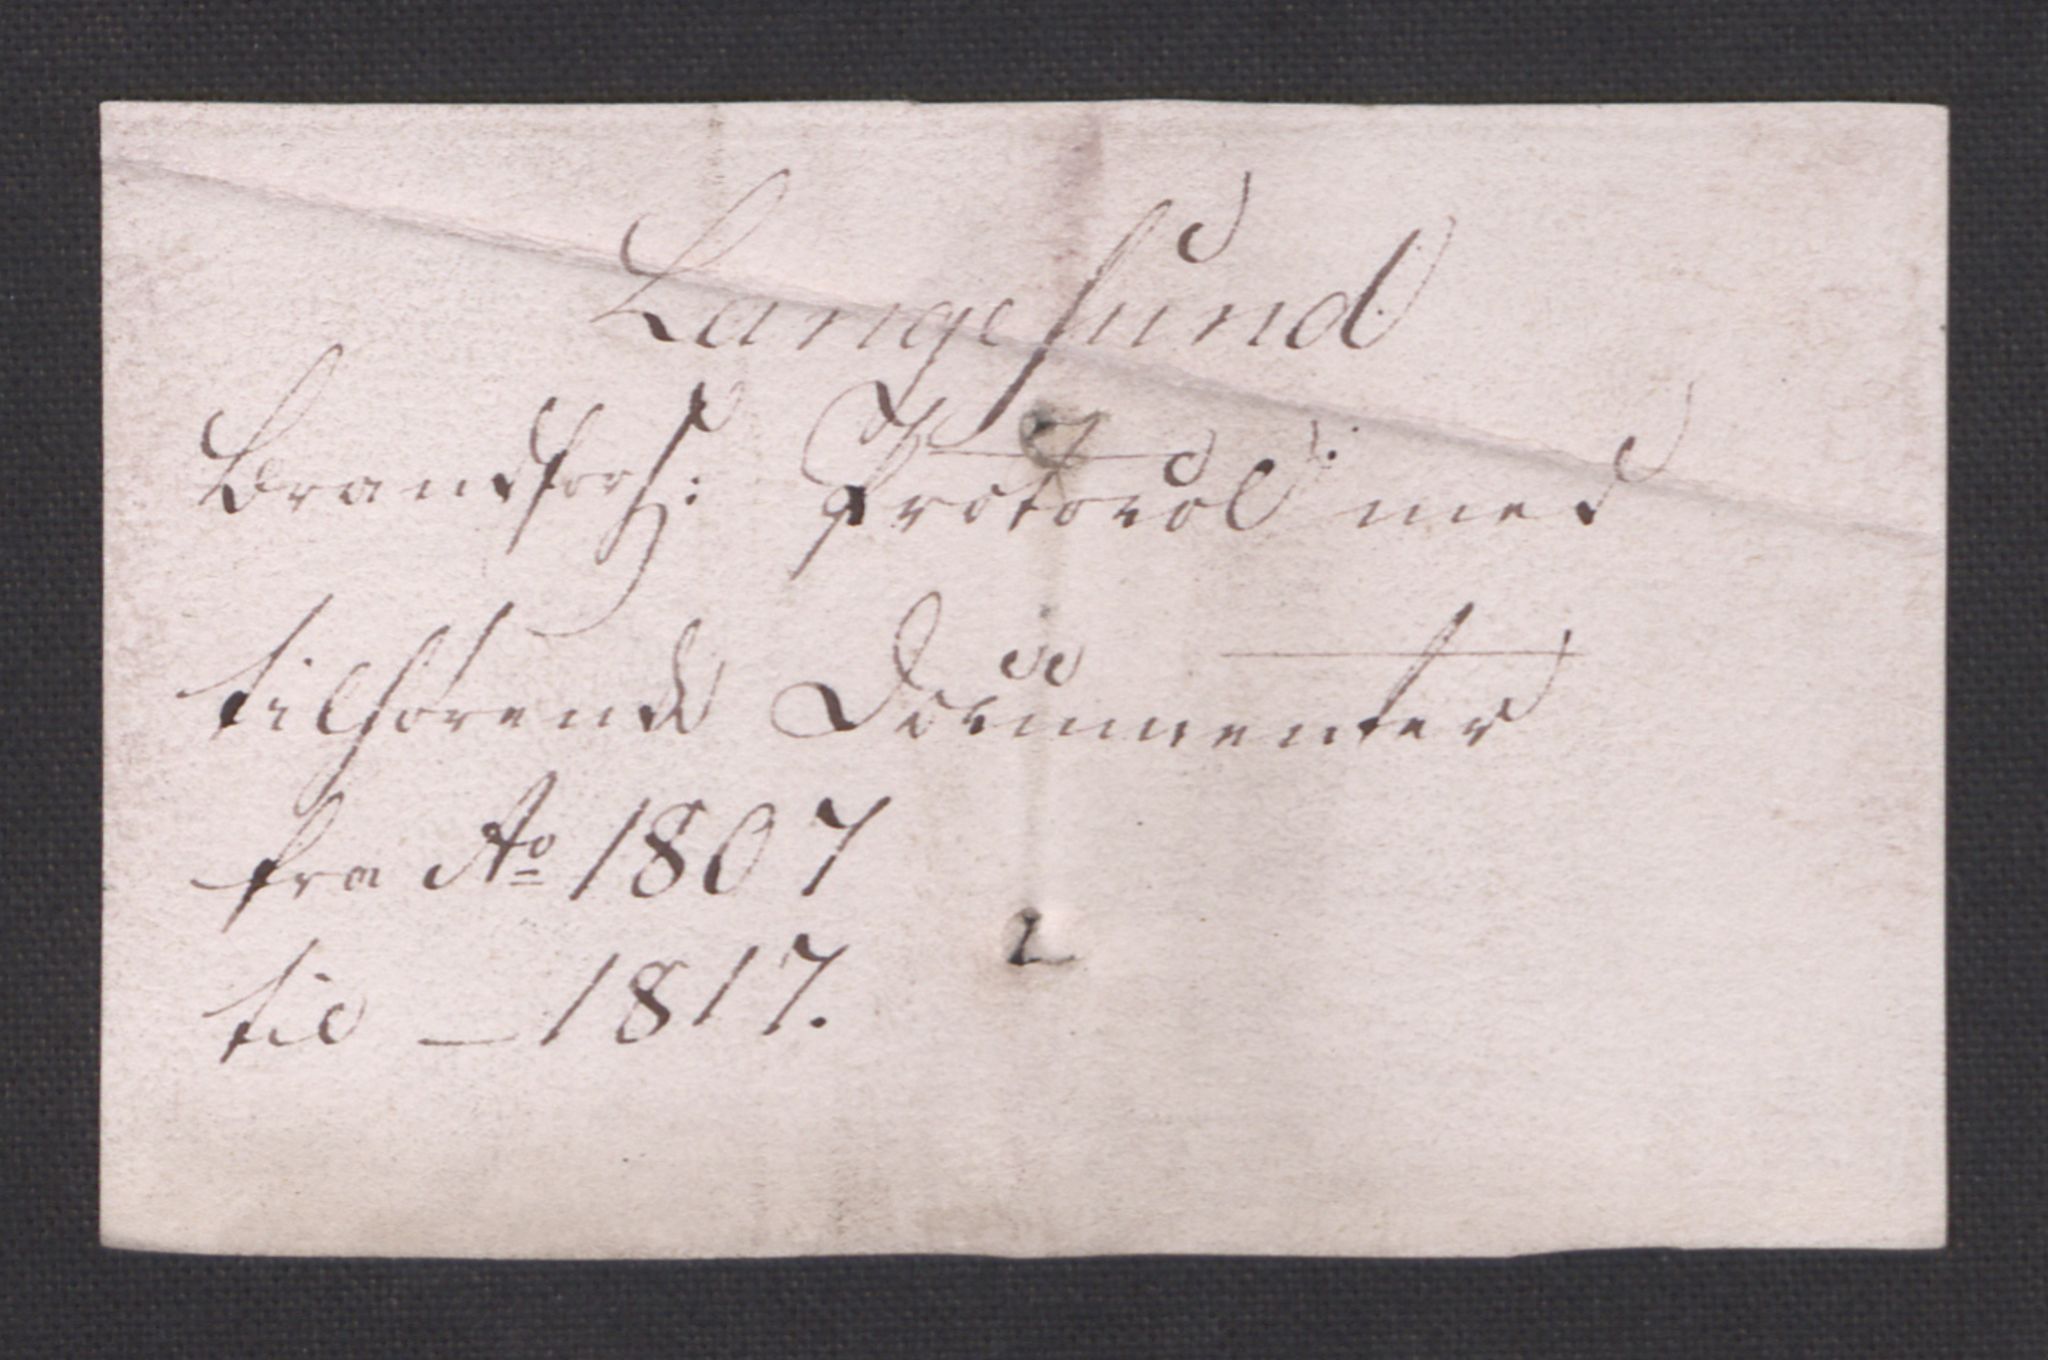 Langesund
Brandfors: Protocol med
tilhörende Documenter
fra Ao 1807
til – 1817.